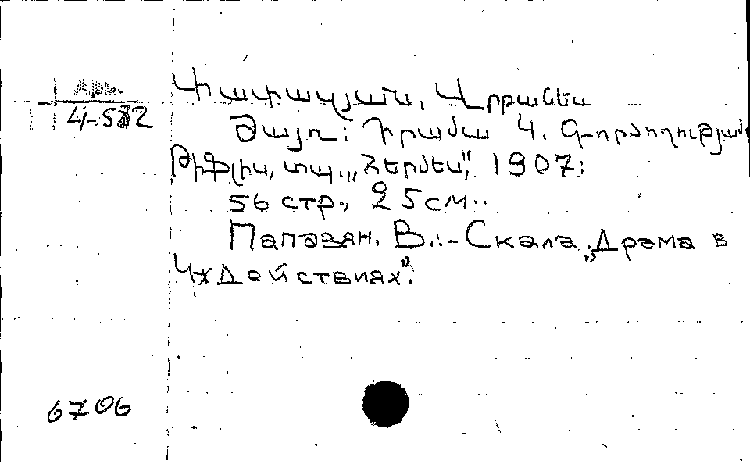 Арм.
4-582
Փափազյան, Վրթանես
Ժայռ: Դրամա 4. Գործողության
Թիֆլիս, տպ. „Հերմես", 1907:
56 стр., 25см..
Папазян. В.:-Скала „Драма в
4х Действиях".
6706